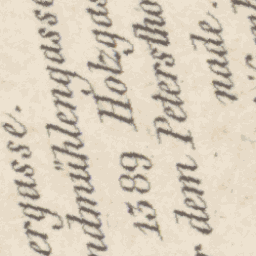 ergasse.
ndmühlengasse
1389 Holzgas
r dem Peterstho
nade.